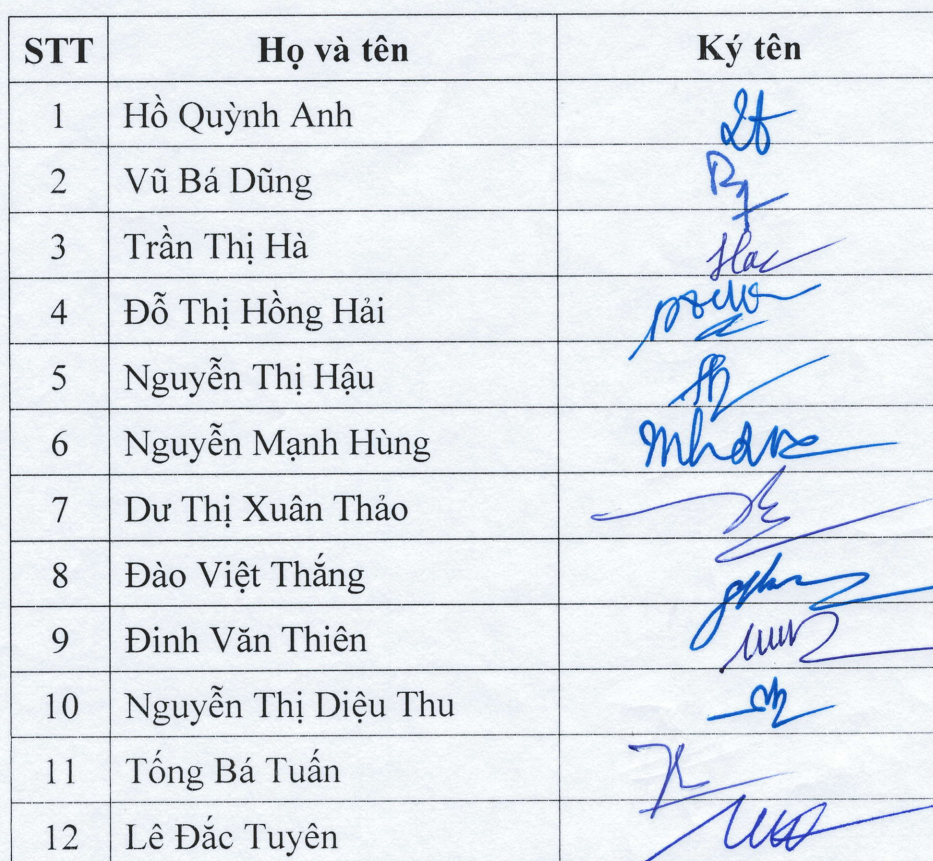 STT Họ và tên Ký tên
1 Hồ Quỳnh Anh
2 Vũ Bá Dũng
3 Trần Thị Hà
4 Đỗ Thị Hồng Hải
5 Nguyễn Thị Hậu
6 Nguyễn Mạnh Hùng
7 Dư Thị Xuân Thảo
8 Đào Việt Thắng
9 Đinh Văn Thiên
10 Nguyễn Thị Diệu Thu
11 Tống Bá Tuấn
12 Lê Đắc Tuyên